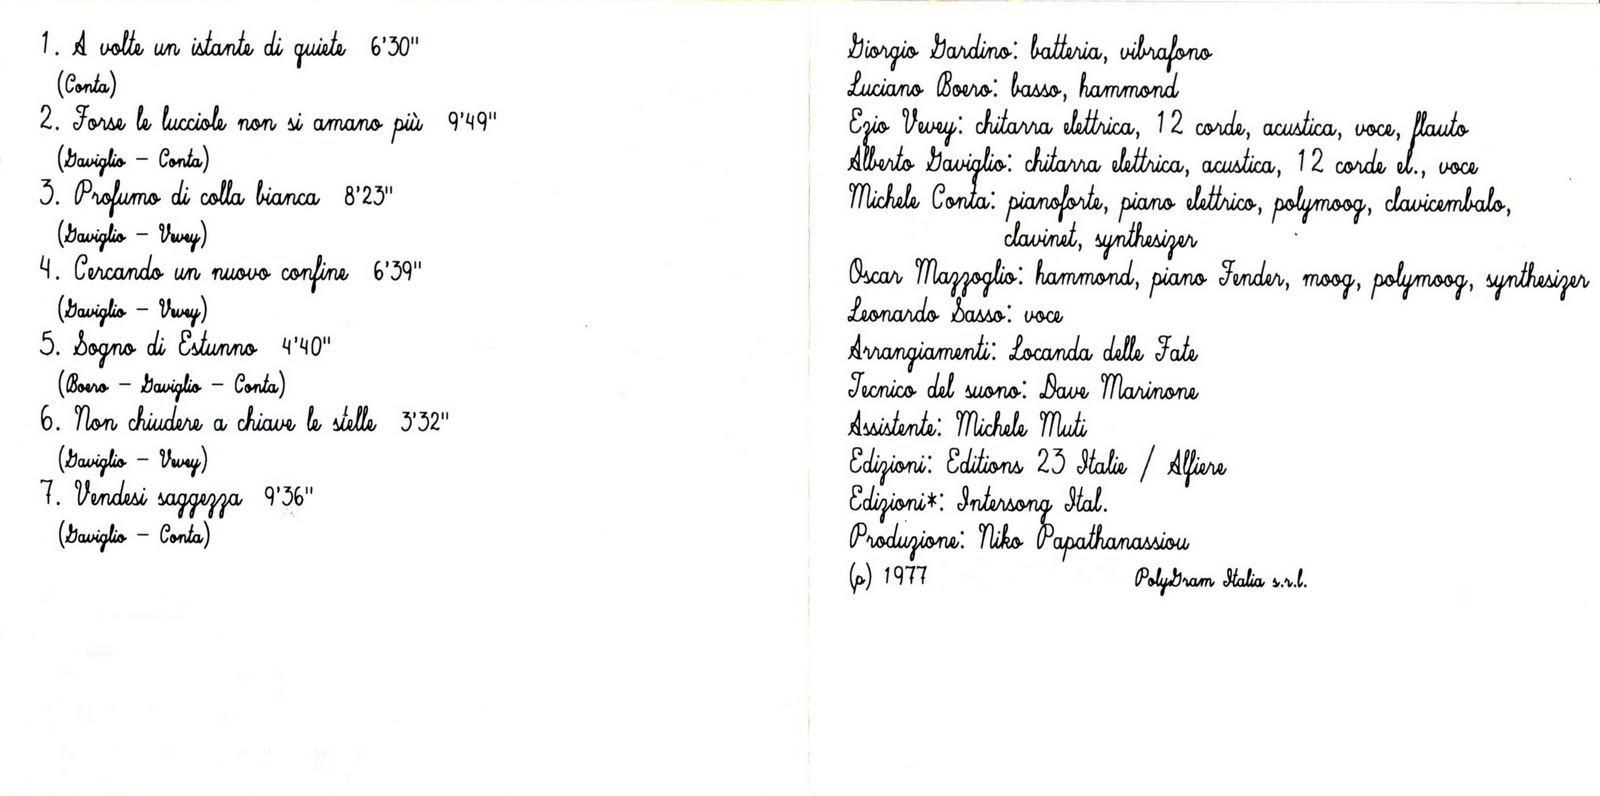 1. A volte un istante di quiete 6'30"
(Conta)
2. Forse le lucciole non si amano più 9'49"
(Gaviglio – Conta)
3. Profumo di colla bianca 8'23"
(Gaviglio – Vevey)
4. Cercando un nuovo confine 6'39"
(Gaviglio – Vevey)
5. Sogno di Estunno 4'40"
(Boero – Gaviglio – Conta)
6. Non chiudere a chiave le stelle 3'32"
(Gaviglio – Vevey)
7. Vendesi saggezza 9'36"
(Gaviglio – Conta)
Giorgio Gardino: batteria, vibrafono
Luciano Boero: basso, hammond
Ezio Vevey: chitarra elettrica, 12 corde, acustica, voce, flauto
Alberto Gaviglio: chitarra elettrica, acustica, 12 corde el., voce
Michele Conta: pianoforte, piano elettrico, polymoog, clavicembalo,
clavinet, synthesizer
Oscar Mazzoglio: hammond, piano Fender, moog, polymoog, synthesizer
Leonardo Sasso: voce
Arrangiamenti: Locanda delle Fate
Tecnico del suono: Dave Marinone
Assistente: Michele Muti
Edizioni: Editions 23 Italie / Alfiere
Edizioni*: Intersong Ital.
Produzione: Niko Papathanassiou
(p) 1977 PolyGram Italia s.r.l.